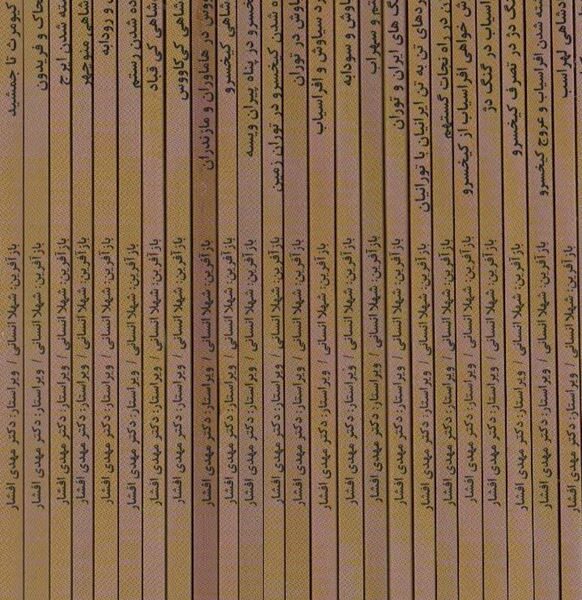 کیومرث تا جمشید بازآفرین: شهلا انسانی / ویراستار: دکتر مهدی افشار
و فریدون بازآفرین: شهلا انسانی / ویراستار: دکتر مهدی افشار
شدن ایرج بازآفرین: شهلا انسانی / ویراستار: دکتر مهدی افشار
شاهی منوچهر بازآفرین: شهلا انسانی / ویراستار: دکتر مهدی افشار
و رودابه بازآفرین: شهلا انسانی / ویراستار: دکتر مهدی افشار
شدن رستم بازآفرین: شهلا انسانی / ویراستار: دکتر مهدی افشار
شاهی کی قباد بازآفرین: شهلا انسانی / ویراستار: دکتر مهدی افشار
شاهی کی‌کاووس بازآفرین: شهلا انسانی / ویراستار: دکتر مهدی افشار
در هاماوران و مازندران بازآفرین: شهلا انسانی / ویراستار: دکتر مهدی افشار
شاهی کیخسرو بازآفرین: شهلا انسانی / ویراستار: دکتر مهدی افشار
خسرو در پناه پیران ویسه بازآفرین: شهلا انسانی / ویراستار: دکتر مهدی افشار
شدن کیخسرو در توران زمین بازآفرین: شهلا انسانی / ویراستار: دکتر مهدی افشار
در توران بازآفرین: شهلا انسانی / ویراستار: دکتر مهدی افشار
سیاوش و افراسیاب بازآفرین: شهلا انسانی / ویراستار: دکتر مهدی افشار
و سودابه بازآفرین: شهلا انسانی / ویراستار: دکتر مهدی افشار
و سهراب بازآفرین: شهلا انسانی / ویراستار: دکتر مهدی افشار
های ایران و توران بازآفرین: شهلا انسانی / ویراستار: دکتر مهدی افشار
تن به تن ایرانیان با تورانیان بازآفرین: شهلا انسانی / ویراستار: دکتر مهدی افشار
در راه نجات گستهم بازآفرین: شهلا انسانی / ویراستار: دکتر مهدی افشار
خواهی افراسیاب از کیخسرو بازآفرین: شهلا انسانی / ویراستار: دکتر مهدی افشار
در گنگ دژ بازآفرین: شهلا انسانی / ویراستار: دکتر مهدی افشار
دژ در تصرف کیخسرو بازآفرین: شهلا انسانی / ویراستار: دکتر مهدی افشار
شدن افراسیاب و عروج کیخسرو بازآفرین: شهلا انسانی / ویراستار: دکتر مهدی افشار
لهراسب بازآفرین: شهلا انسانی / ویراستار: دکتر مهدی افشار